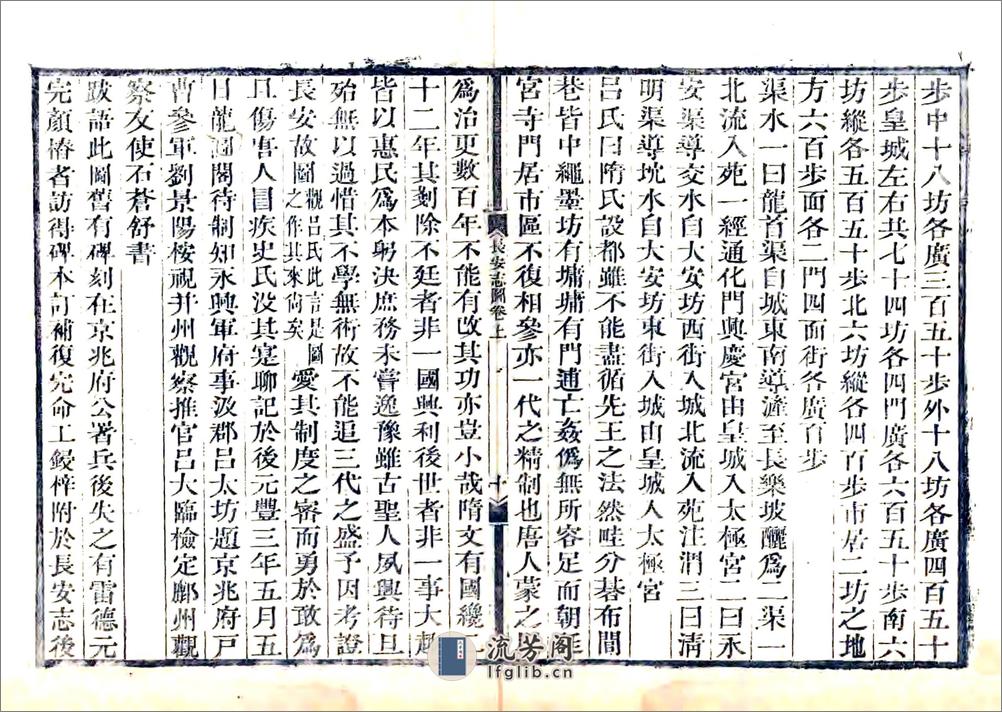 步中十八坊各廣三百五十步外十八坊各廣四百五十
步皇城左右共七十四坊各四門廣各六百五十步南六
坊縱各五百五十步北六坊縱各四百步市居二坊之地
方六百步面各二門四面街各廣百步
渠水一曰龍首渠自城東南導滻至長樂坡釃為二渠一
北流入苑一經通化門興慶宮由皇城入太極宮二曰永
安渠導交水自大安坊西街入城北流入苑注渭三曰清
明渠導坈水自大安坊東街入城由皇城入太極宮
呂氏曰隋氏設都雖不能盡循先王之法然畦分棊布閭
巷皆中繩墨坊有墉墉有門逋亡姦僞無所容足而朝廷
宮寺門居市區不復相參亦一代之精制也唐人蒙之以
長安志圖卷上
十
為治更數百年不能有改其功亦豈小哉隋文有國纔二
十二年其剗除不廷者非一國興利後世者非一事大趣
皆以惠民為本躬決庶務未嘗逸豫雖古聖人夙興待旦
殆無以過惜其不學無術故不能追三代之盛予因考證
長安故圖觀呂氏此言是圖之作其來尚矣愛其制度之審而勇於敢為
且傷唐人冒疾史氏沒其實聊記於後元豐三年五月五
日龍圖閣待制知永興軍府事汲郡呂大防題京兆府戸
曹參軍劉景陽按視并州觀察推官呂大臨檢定鄜州觀
察友使石蒼舒書
跋語此圖舊有碑刻在京兆府公署兵後失之有雷德元
完顏椿者訪得碑本訂補復完命工鋟梓附於長安志後
流芳阁
lfglib.cn